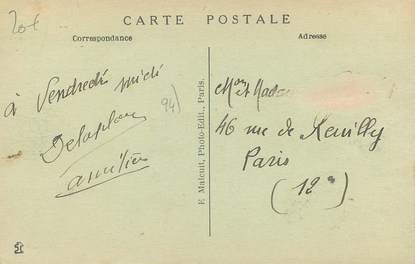 20€
CARTE POSTALE
Correspondance
Adresse
à Vendredi midi
94)
amitiés
F. Malcuit, Photo-Edit., Paris.
46 rue de Reuilly
Paris
(12e)